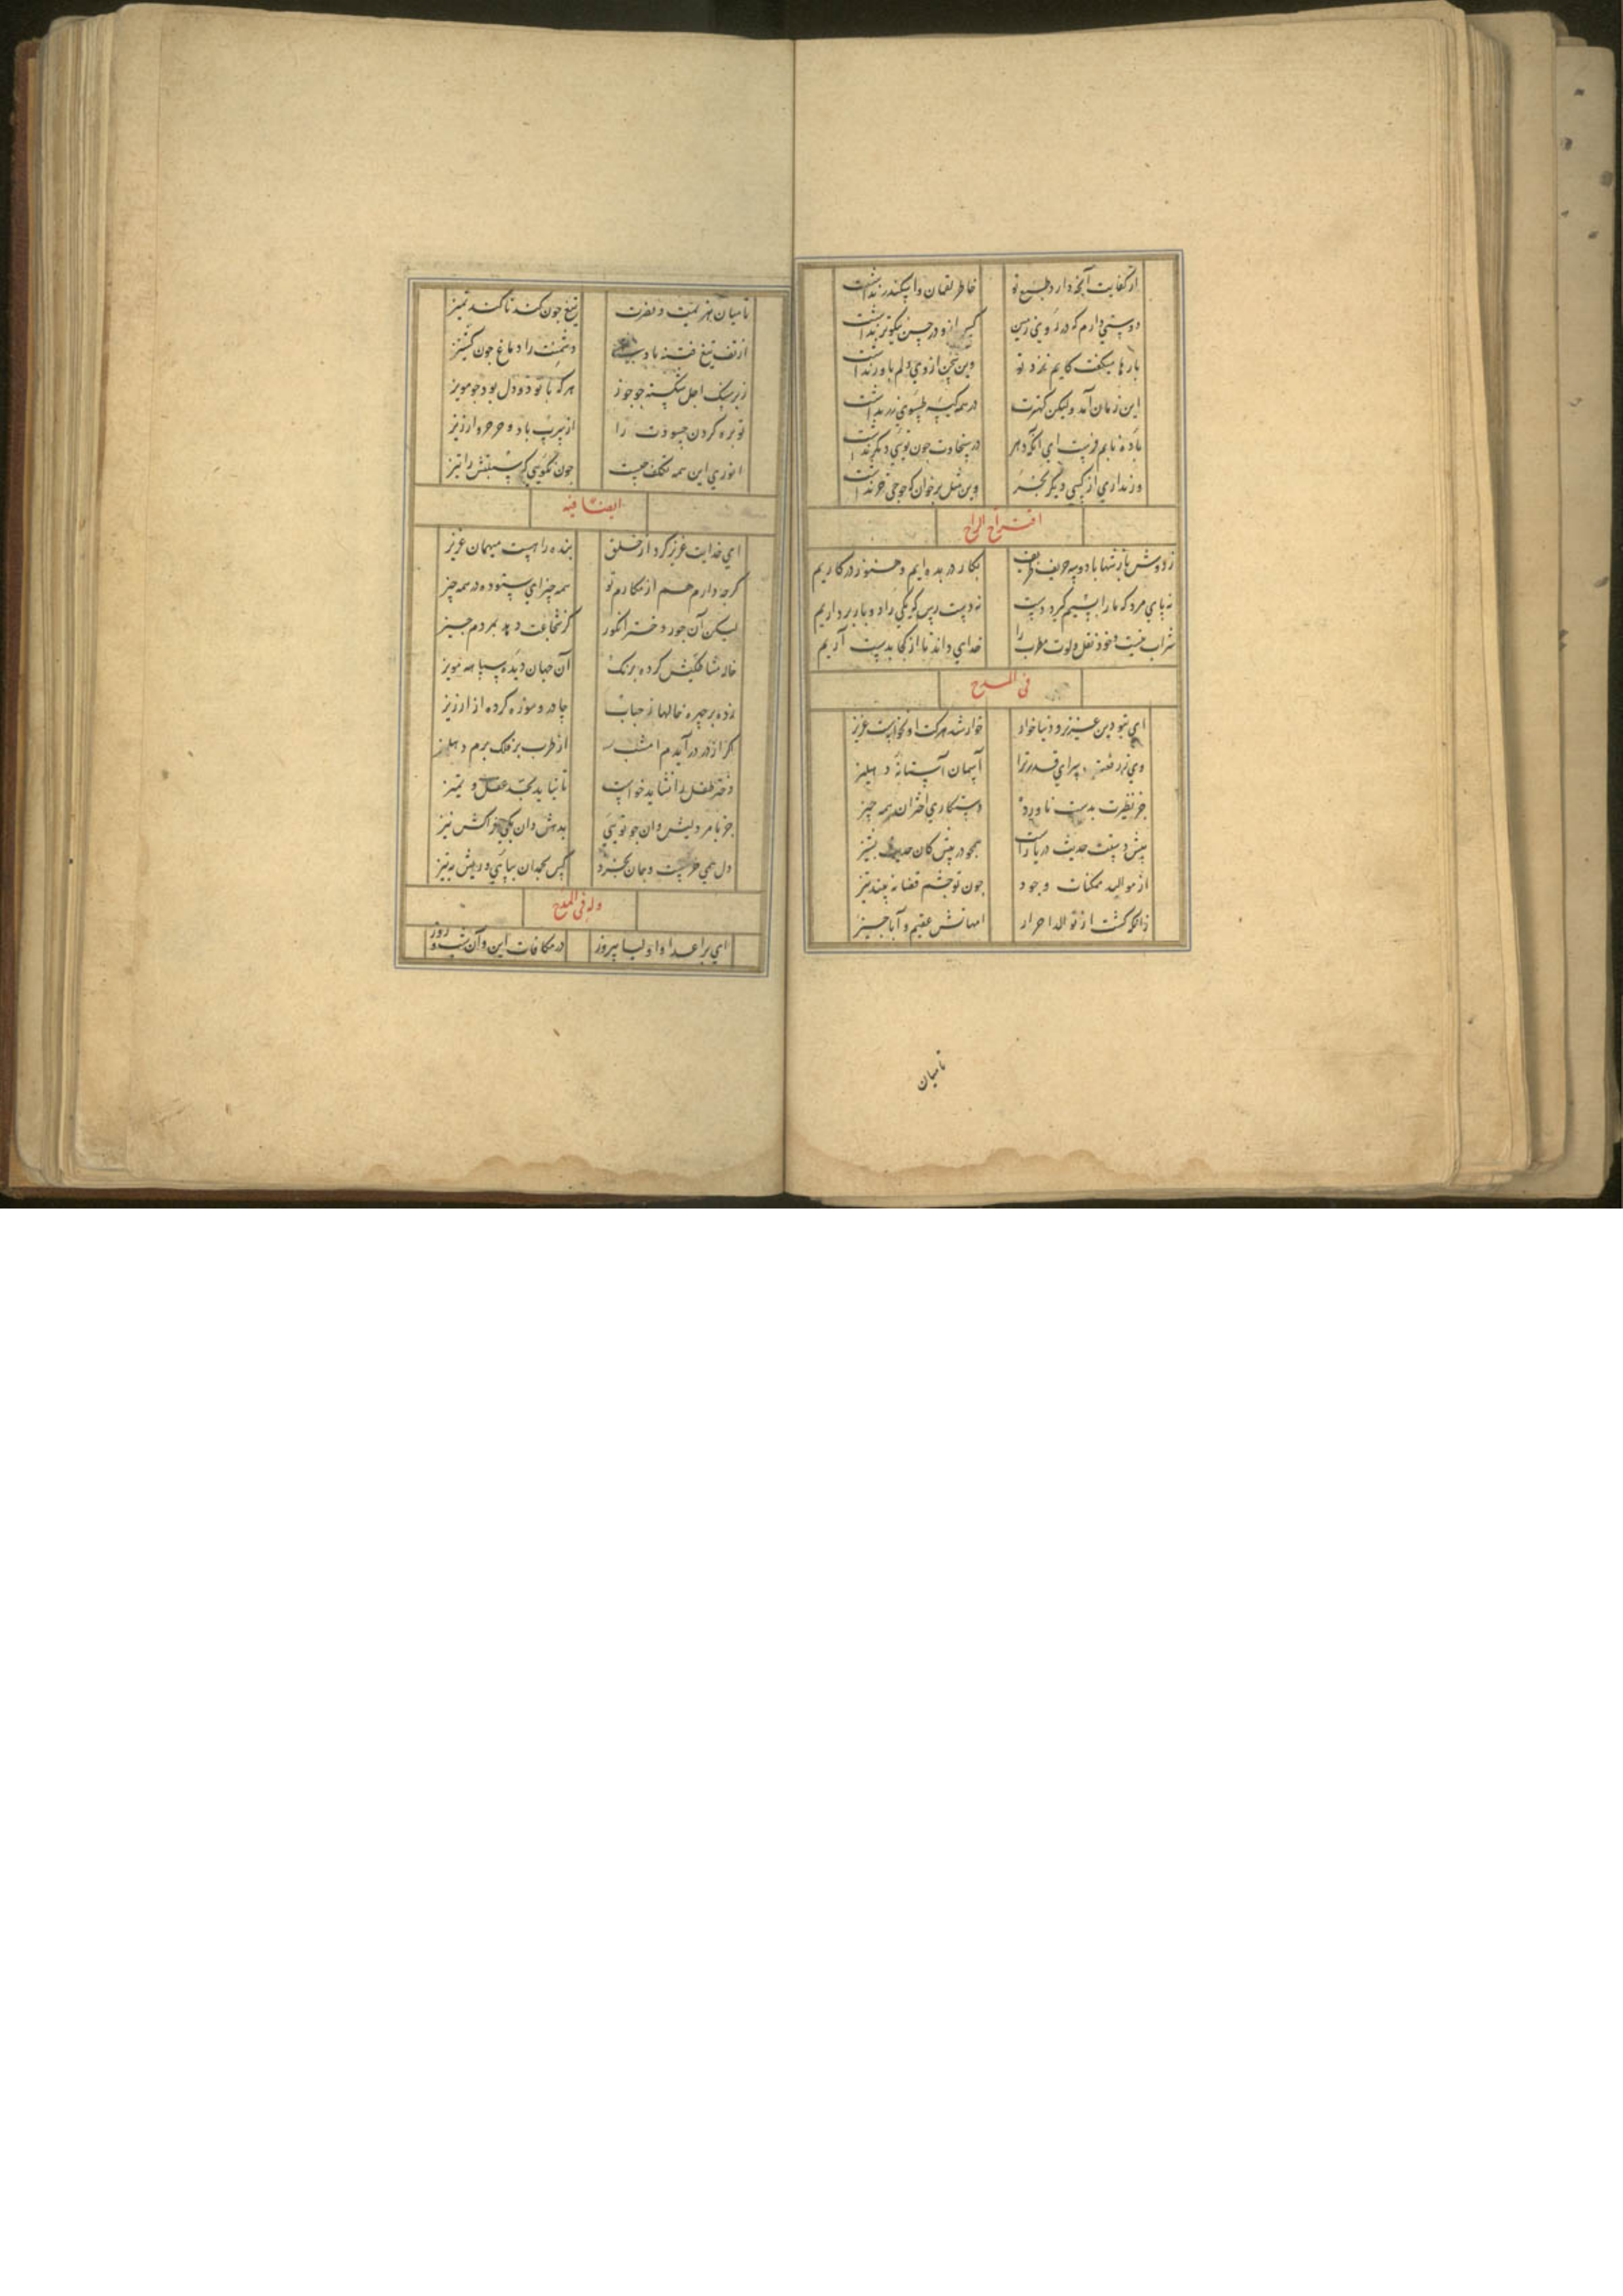 از کفایت آنچه دارد طبع تو خاطر لقمان و اسکندر نداشت
دوستی دارم که در روی زمین کس ازو در حسن نیکوتر نداشت
بارها میگفت کایم نزد تو وین سخن از وی دلم باور نداشت
این زمان آمد ولیکن کهترت در همه کیسه طسوی زر نداشت
باده نابم فرست ای آنکه دهر در سخاوت چون توئی دیگر نداشت
ور نداری از کسی دیگر بخر وین مثل برخوان که جوحی خر نداشت
اقتراح الراح
ز دوش باز شبها با دو سه حریف ظریف بکار در بده ایم و هنوز در کاریم
نه پای مرد که ما را بسیم گیرد دست نه دست رس که یکی را دو بار برداریم
شراب نیست و خود نقل و لوت مطرب را خدای داند تا از کجا بدست آریم
فی المدح
ای بتو دین عزیز و دنیا خوار خوار شد هرکت او نخواست عزیز
وی ز رفعت سرای قدر ترا آسمان آستانهٔ دهلیز
جز نظیرت بدست ناورده دستکاری اختران همه چیز
پیش دستت حدیث دریا راست همچو در پیش کان حدیث پشیز
از موالید ممکنات وجود چون تو چشم قضا نه بیند نیز
زانکه گشت از توالد احرار امهاتش عقیم و آبا حیز
تامیان
تا میان هزیمت و نصرت تیغ چون کند تا کند تمیز
از تف تیغ فتنه باد دشمنت را دماغ چون گشنیز
زیر سنگ اجل شکسته چو جوز هرکه با تو دو دل بود چو مویز
توبره کردن حسودت را از سرب باد و خرخر و ارزیز
انوری این همه تکلف چیست چون نگویی که سبلتش را تیز
ایضا فیه
ای خدایت عزیز کرد از خلق بنده را هست میهمان عزیز
گرچه دارم هم از مکارم تو همه چیز ای ستوده در همه چیز
لیکن آن جور دختر انگور کز شجاعت دهد بمردم حیز
خاله مشاطگیش کرده برنگ آن جهان دیده سیاهه مویز
زده بر چهره خالها ز حباب چادر و موزه کرده از ارزیز
گر از در در آیدم امشب از طرب بر فلک برم دهلیز
دختر طفل را نشاید خواست تا نیاید بحد عقل و تمیز
جز بامر ولیش وان چو توئی بدهش وان یکی خراکش نیز
دل همی خر چیست و جان بخرد کس بجدان بیاسی و ریش به تیز
وله فی المدح
ای بر اعدا و اولیا پیروز در مکافات این و آن شب و روز